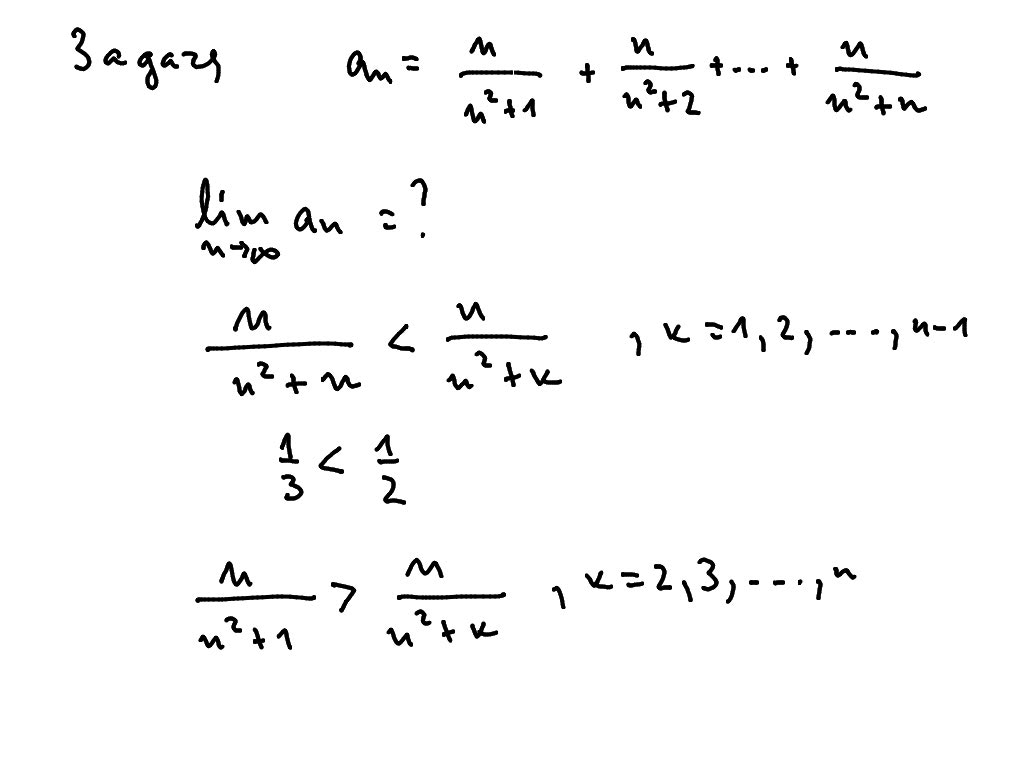 Задача a_n = n/(n²+1) + n/(n²+2) + ... + n/(n²+n)
lim_{n→∞} a_n = ?
n/(n²+n) < n/(n²+k) , k = 1, 2, ...., n-1
1/3 < 1/2
n/(n²+1) > n/(n²+k) , k = 2, 3, ...., n